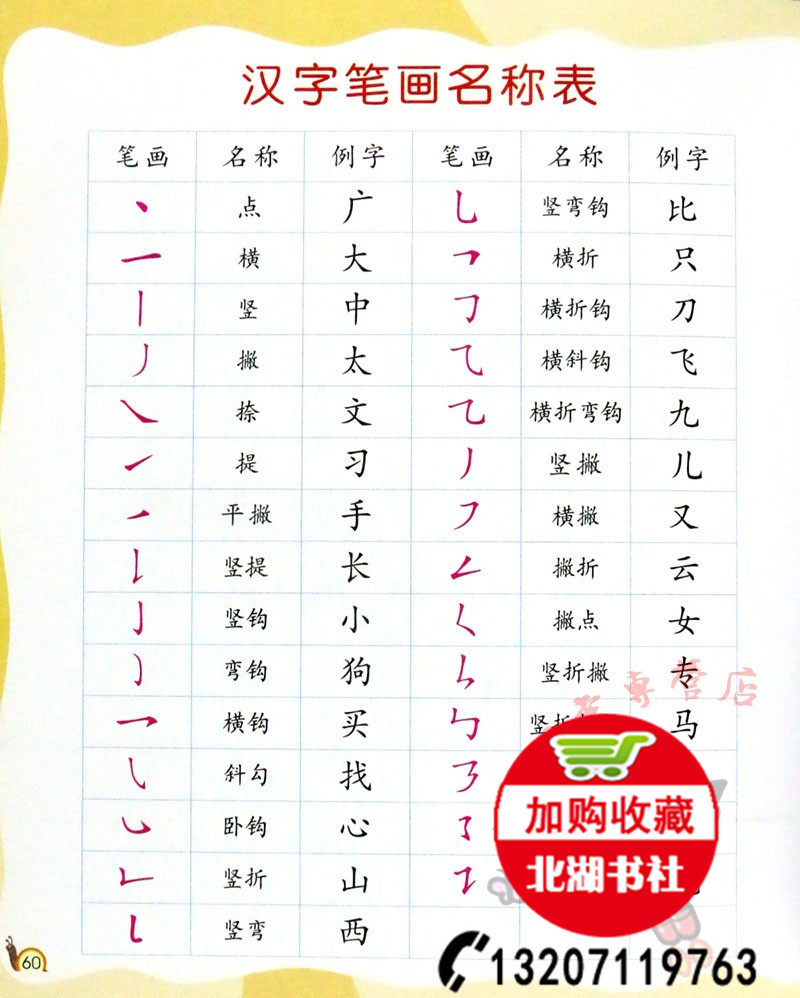 汉字笔画名称表
笔画 名称 例字 笔画 名称 例字
丶 点 广 乚 竖弯钩 比
一 横 大 𠃍 横折 只
丨 竖 中 𠃌 横折钩 刀
丿 撇 太 ⺄ 横斜钩 飞
㇏ 捺 文 乙 横折弯钩 九
㇀ 提 习 丿 竖撇 儿
㇒ 平撇 手 ㇇ 横撇 又
𠄌 竖提 长 𠃋 撇折 云
亅 竖钩 小 𡿨 撇点 女
㇁ 弯钩 狗 ㇞ 竖折撇 专
乛 横钩 买 ㇉ 竖折 马
㇂ 斜勾 找 ㇋
㇃ 卧钩 心 ㇌
𠃊 竖折 山 ㇊
㇄ 竖弯 西
專营店
加购收藏
北湖书社
13207119763
60